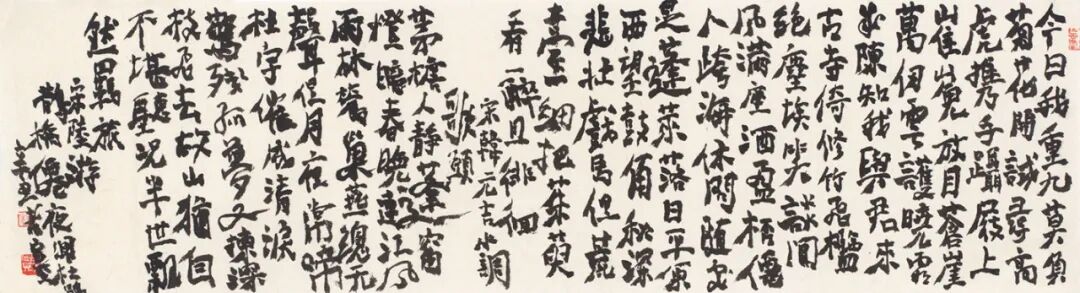 今日我重九莫負
菊花開試尋高
處攜手躡屐上
崔嵬放目蒼崖
萬仞雲護曉霜
成陳知我與君來
古寺倚修竹飛檻
絕塵埃笑談間
風滿座酒盈杯僊
人跨海休問隨處
是蓬萊落日平原
西望鼓角秋深
悲壯戲馬但荒
臺細把茱萸
看一醉且徘徊
宋韓元吉水調
歌頭
茅檐人靜蓬窗
燈暗春晚連江風
雨林鶯巢燕總無
聲但月夜常啼
杜宇催成清淚
驚殘孤夢又揀深
枝飛去故山猶自
不堪聽況半世飄
然羈旅
宋陸游
鵲橋僊夜聞杜鵑